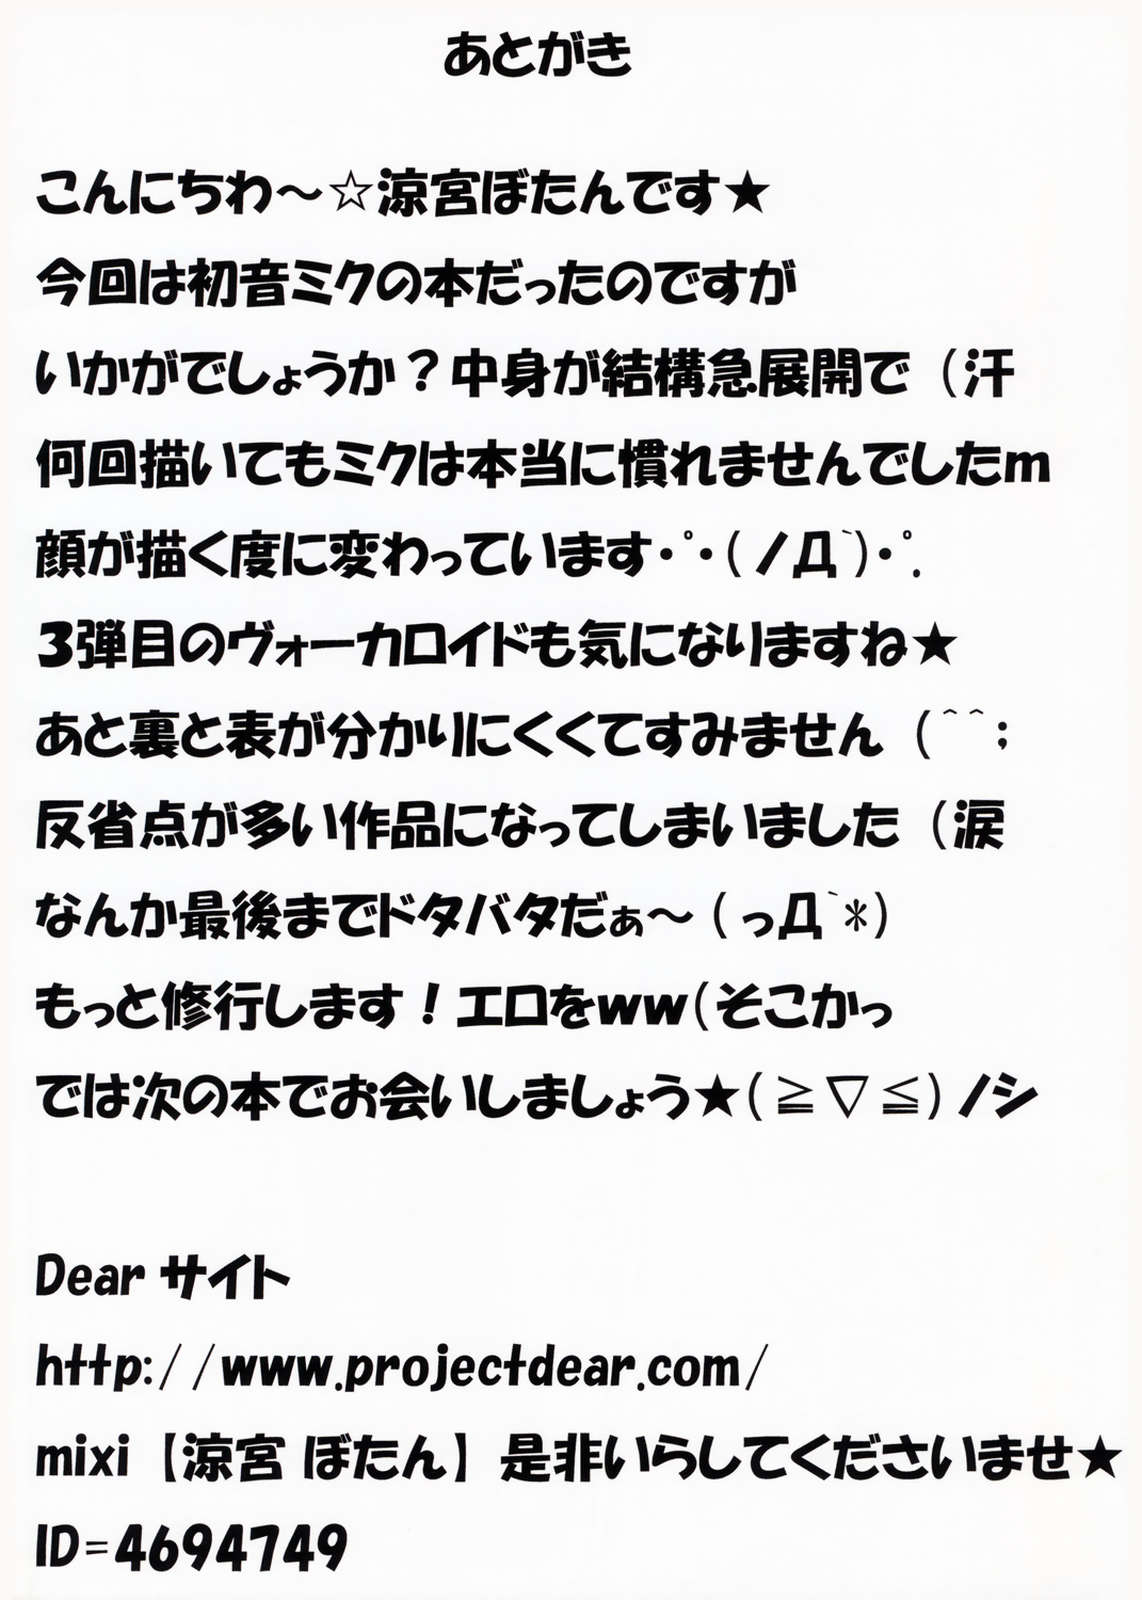 あとがき
こんにちわ～☆涼宮ぼたんです★
今回は初音ミクの本だったのですが
いかがでしょうか？中身が結構急展開で（汗
何回描いてもミクは本当に慣れませんでしたm
顔が描く度に変わっています･ﾟ･(ノД`)･ﾟ.
3弾目のヴォーカロイドも気になりますね★
あと裏と表が分かりにくくてすみません（＾＾；
反省点が多い作品になってしまいました（涙
なんか最後までドタバタだぁ～（っД`*）
もっと修行します！エロをww(そこかっ
では次の本でお会いしましょう★(≧▽≦)ノシ
Dear サイト
http://www.projectdear.com/
mixi【涼宮 ぼたん】是非いらしてくださいませ★
ID=4694749